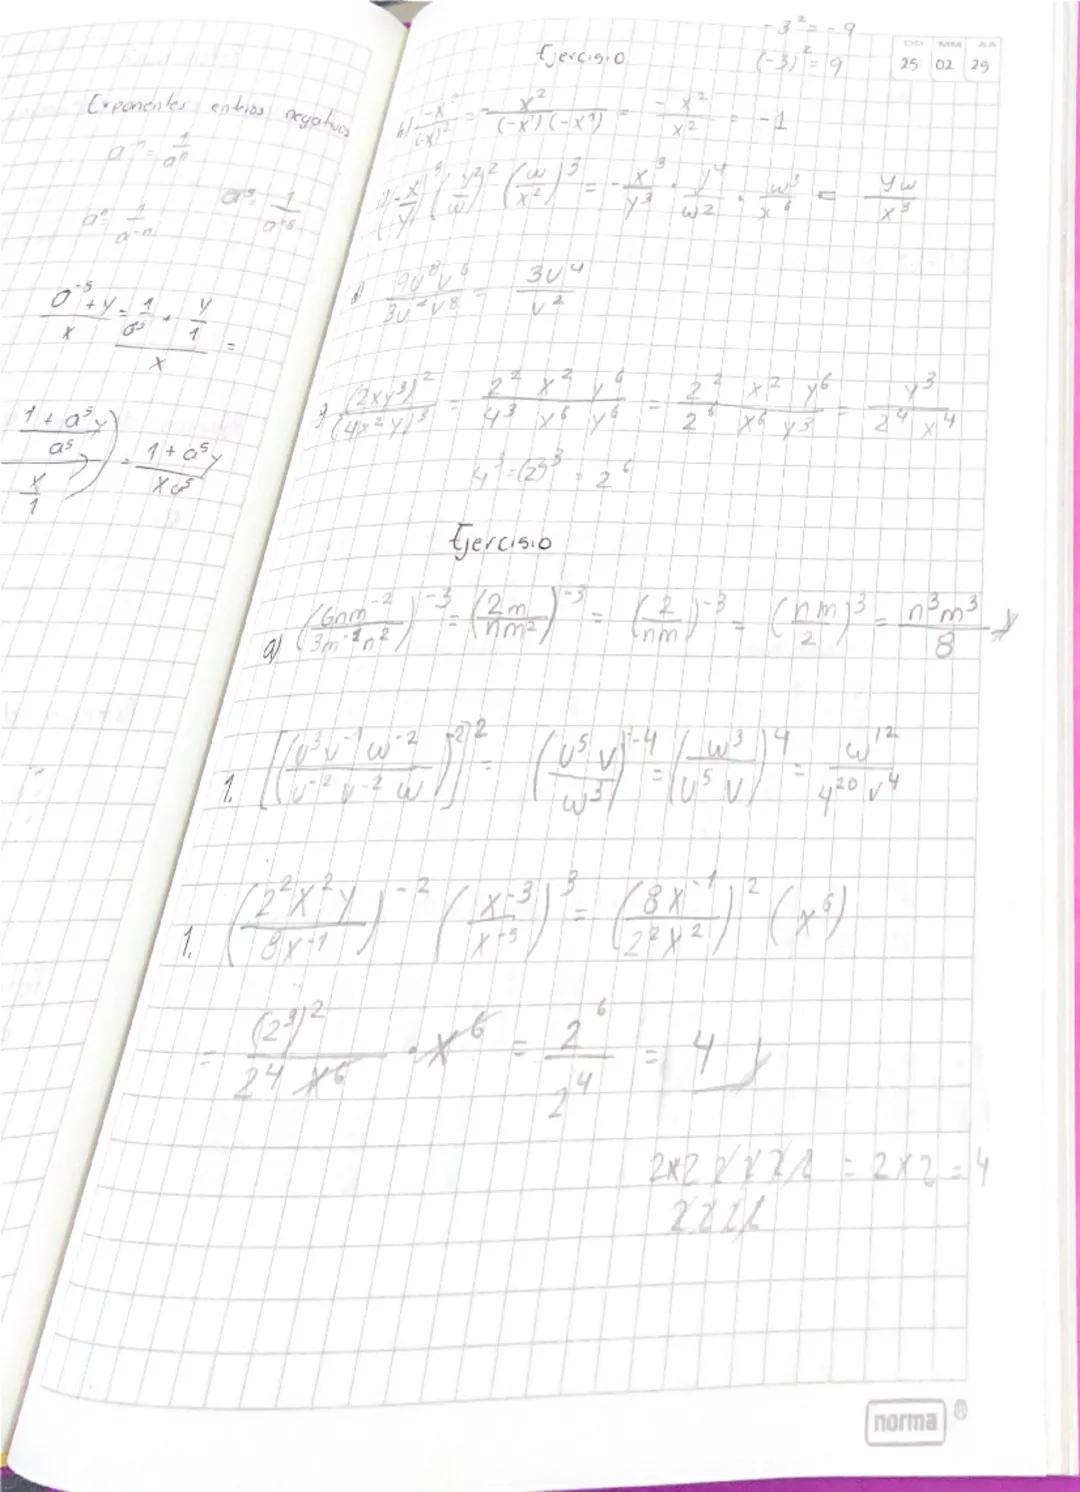 Exponentes enteros negativos
a^-n = 1/a^n
a^n = 1/a^-n
a^5 = 1/a^-5
(a^-5 + y)/x = (1/a^5 + y/1)/x =
((1 + a^5 y)/a^5)/(x/1)) = (1 + a^5 y)/(x a^5)
-3^2 = -9
Ejercisio
(-3)^2 = 9
DD MM AA
25 02 25
h) -x^2/(-x)^2 = - x^2/((-x^1)(-x^1)) = -x^2/x^2 = -1
(-x/y)^3 (y^2/w)^2 (w/x^2)^3 = - x^3/y^3 · y^4/w^2 · w^3/x^6 = yw/x^3
d) 9u^8v^6/3u^4v^8 = 3u^4/v^2
g) (2xy^3)^2/(4x^2y)^3 = 2^2 x^2 y^6/4^3 x^6 y^6 = 2^2 x^2 y^6/2^6 x^6 y^3 = y^3/2^4 x^4
4^3 = (2^2)^3 = 2^6
Ejercisio
a) (6nm^-2/3m^-1n^2)^-3 = (2m/nm^2)^-3 = (2/nm)^-3 = (nm/2)^3 = n^3m^3/8
1. [(u^3v^-1w^-2/u^-2v^-2w)^-2]^2 = (u^5v/w^3)^-4 = (w^3/u^5v)^4 = w^12/4^20v^4
1. (2^2x^2y/8x^-1)^-2 (x^-3/x^-5)^3 = (8x^-1/2^2x^2)^2 (x^6)
= (2^3)^2/2^4 x^6 · x^6 = 2^6/2^4 = 4
2x2 2 2 2 2 = 2x2 = 4
2 2 2 2
norma®